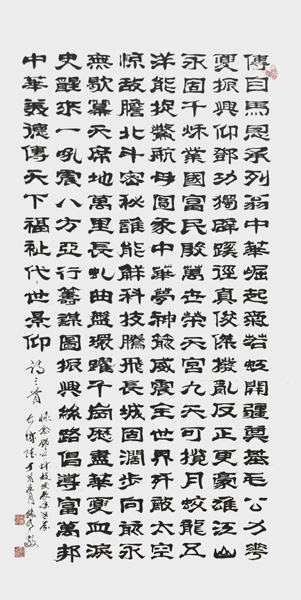 傳自馬恩承列翁中華崛起燕若虹開疆奠基毛公力華
夏振興仰鄧功獨闢蹊徑真俊傑撥亂反正更豪雄江山
永固千秌業國富民殷萬世榮天宮九天可攬月蛟龍五
洋能捉鱉航母圓承中華夢神箭威震全世界歼敵太空
惊敵膽北斗密秘誰能解科技騰飛長城固闊步向前永
無歇冪天席地萬里長虬曲盤環躍千崗歷盡華夏血淚
史醒來一吼震八方亞行籌謀圖振興絲路倡導富萬邦
中華美德傳天下福祉代世景仰 詩三首